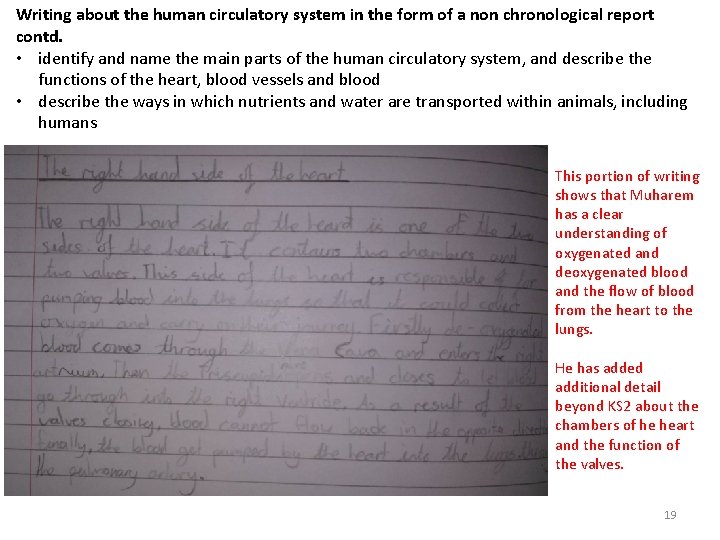 Writing about the human circulatory system in the form of a non chronological report
contd.
• identify and name the main parts of the human circulatory system, and describe the
functions of the heart, blood vessels and blood
• describe the ways in which nutrients and water are transported within animals, including
humans
The right hand side of the heart
The right hand side of the heart is one of the two
sides of the heart. It contains two chambers and
two valves. This side of the heart is responsible for
pumping blood into the lungs so that it could collect
oxygen and carry on their journey. Firstly de-oxygenated
blood comes through the Vena Cava and enters the right
Then the and closes to let
go through into the right As a result of the
valves closing, blood cannot flow back in the opposite
Finally, the blood get pumped by the heart into the lungs
the pulmonary artery.
This portion of writing
shows that Muharem
has a clear
understanding of
oxygenated and
deoxygenated blood
and the flow of blood
from the heart to the
lungs.
He has added
additional detail
beyond KS2 about the
chambers of he heart
and the function of
the valves.
19